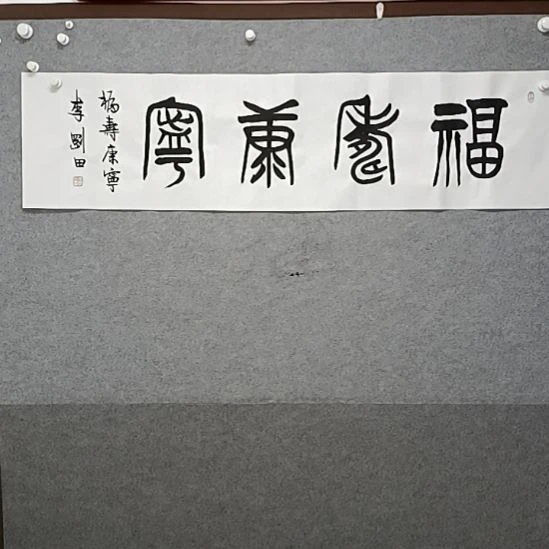 福壽康寧
福壽康寧
李劉田